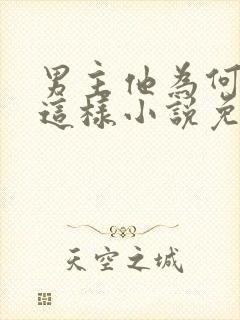 男主他為何
這樣小說免
天空之城